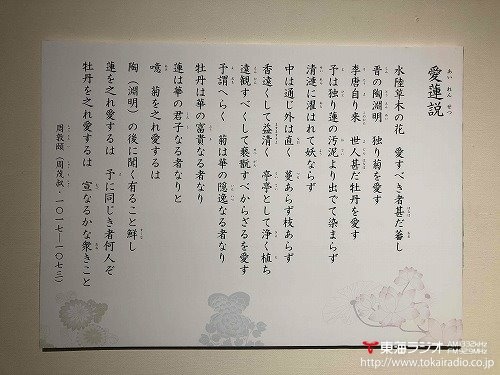 愛蓮説
あい れん せつ
水陸草木の花 愛すべき者甚だ蕃し
晋の陶淵明 独り菊を愛す
李唐自り来 世人甚だ牡丹を愛す
予は独り蓮の汚泥より出でて染まらず
清漣に濯はれて妖ならず
中は通じ外は直く 蔓あらず枝あらず
香遠くして益清く 亭亭として浄く植ち
遠観すべくして褻翫すべからざるを愛す
予謂へらく 菊は華の隠逸なる者なり
牡丹は華の富貴なる者なり
蓮は華の君子なる者なりと
噫 菊を之れ愛するは
陶(淵明)の後に聞く有ること鮮し
蓮を之れ愛するは 予に同じき者何人ぞ
牡丹を之れ愛するは 宜なるかな衆きこと
周敦頤(周茂叔・一〇一七―一〇七三)
東海ラジオ AM1332kHz
FM92.9MHz
http://www.tokairadio.co.jp